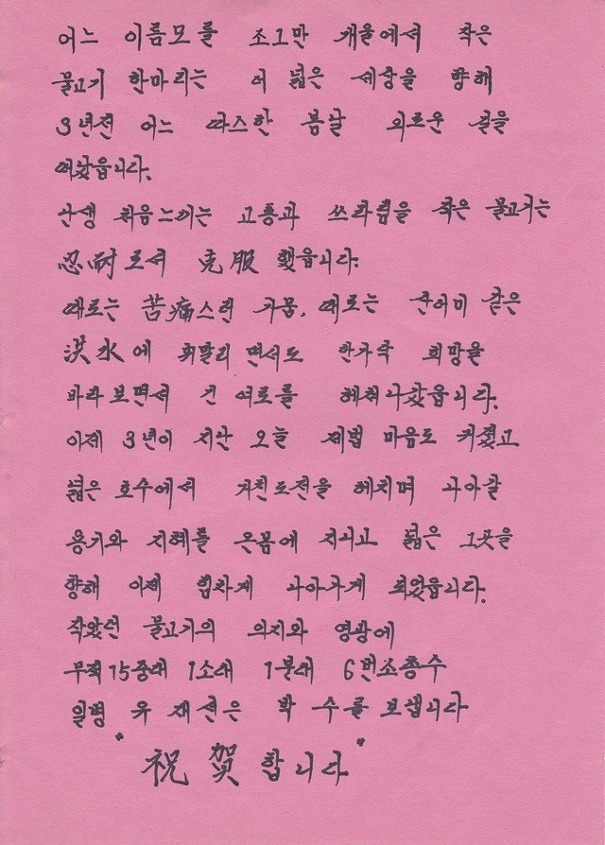 어느 이름모를 조그만 개울에서 작은
물고기 한마리는 더 넓은 세상을 향해
3년전 어느 따스한 봄날 외로운 길을
떠났읍니다.
난생 처음느끼는 고통과 쓰라림을 작은 물고기는
忍耐로서 克服 했읍니다.
때로는 苦痛스런 가뭄, 때로는 산더미 같은
洪水에 휘말리면서도 한가닥 희망을
바라보면서 긴 여로를 헤쳐나갔읍니다.
이제 3년이 지난 오늘 제법 마음도 커졌고
넓은 호수에서 거친도전을 헤치며 나아갈
용기와 지혜를 온몸에 지니고 넓은 그곳을
향해 이제 힘차게 나아가게 되었읍니다.
작았던 물고기의 의지와 영광에
무적15중대 1소대 1분대 6번소총수
일병 유재션은 박수를 보냅니다
"祝賀합니다"